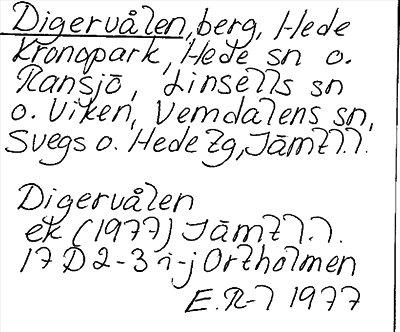 Digervålen, berg, Hede
Kronopark, Hede sn o.
Ransjö, Linsells sn
o. Viken, Vemdalens sn,
Svegs o. Hede tg, Jämtl.l.
Digervålen
ek (1977) Jämtl.l.
17 D 2-3 i-j Ortholmen
E.R-l 1977